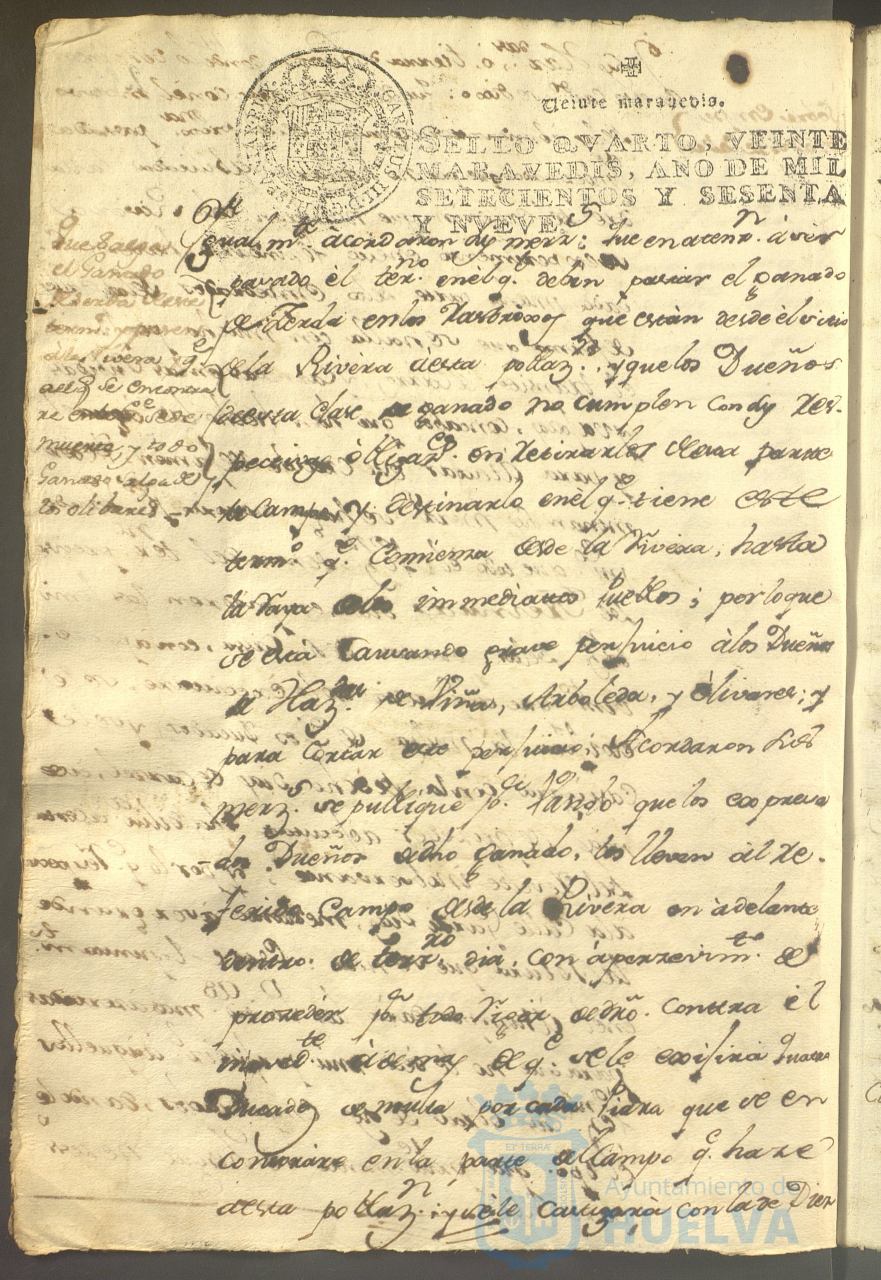 Veinte maravedis.
SELLO QVARTO, VEINTE
MARAVEDIS, AÑO DE MIL
SETECIENTOS Y SESENTA
Y NVEVE.
CAROLUS III
Que salga
el Ganado
de Zerda deste
term.o
a la Rivera q.e
se encontra
re
muerto, y todo
Ganado salga de
los olibares
Igualm.te acordaron sus merz.s que en aten.n á
el ter.no en el q.e deben pastar el ganado
de Zerda en los Rastroxos que están desde el sitio
de la Rivera á esta poblaz.n, y que los Dueños
desta clase de ganado no cumplen con sus res-
pectivas obligaz.s en retirarlos desta parte
de Campo, y destinarlo en el q.e tiene este
term.o q.e comienza desde la Rivera, hasta
la Raya de los immediatos Pueblos; por lo que
se está Causando grave perjuicio á los Dueños
de Haz.das de Viñas, Arboleda, y Olivares; y
para Cortar este perjuicio, Acordaron sus
merz.s se publique p.r Vando que los expresa-
dos Dueños de dho ganado, los lleven al re-
ferido Campo desde la Rivera en adelante
dentro de terz.ro dia, con apercevim.to de
proceder p.r todo Rigor de dro. contra el
á demas de q.e se le exijirá quatro
Ducados de multa por cada Piara que se en
contrare en la parte del Campo q.e haze
á esta poblaz.n; y se le Castigará con la de Diez
EX TERRÆ
Ayuntamiento de
HUELVA